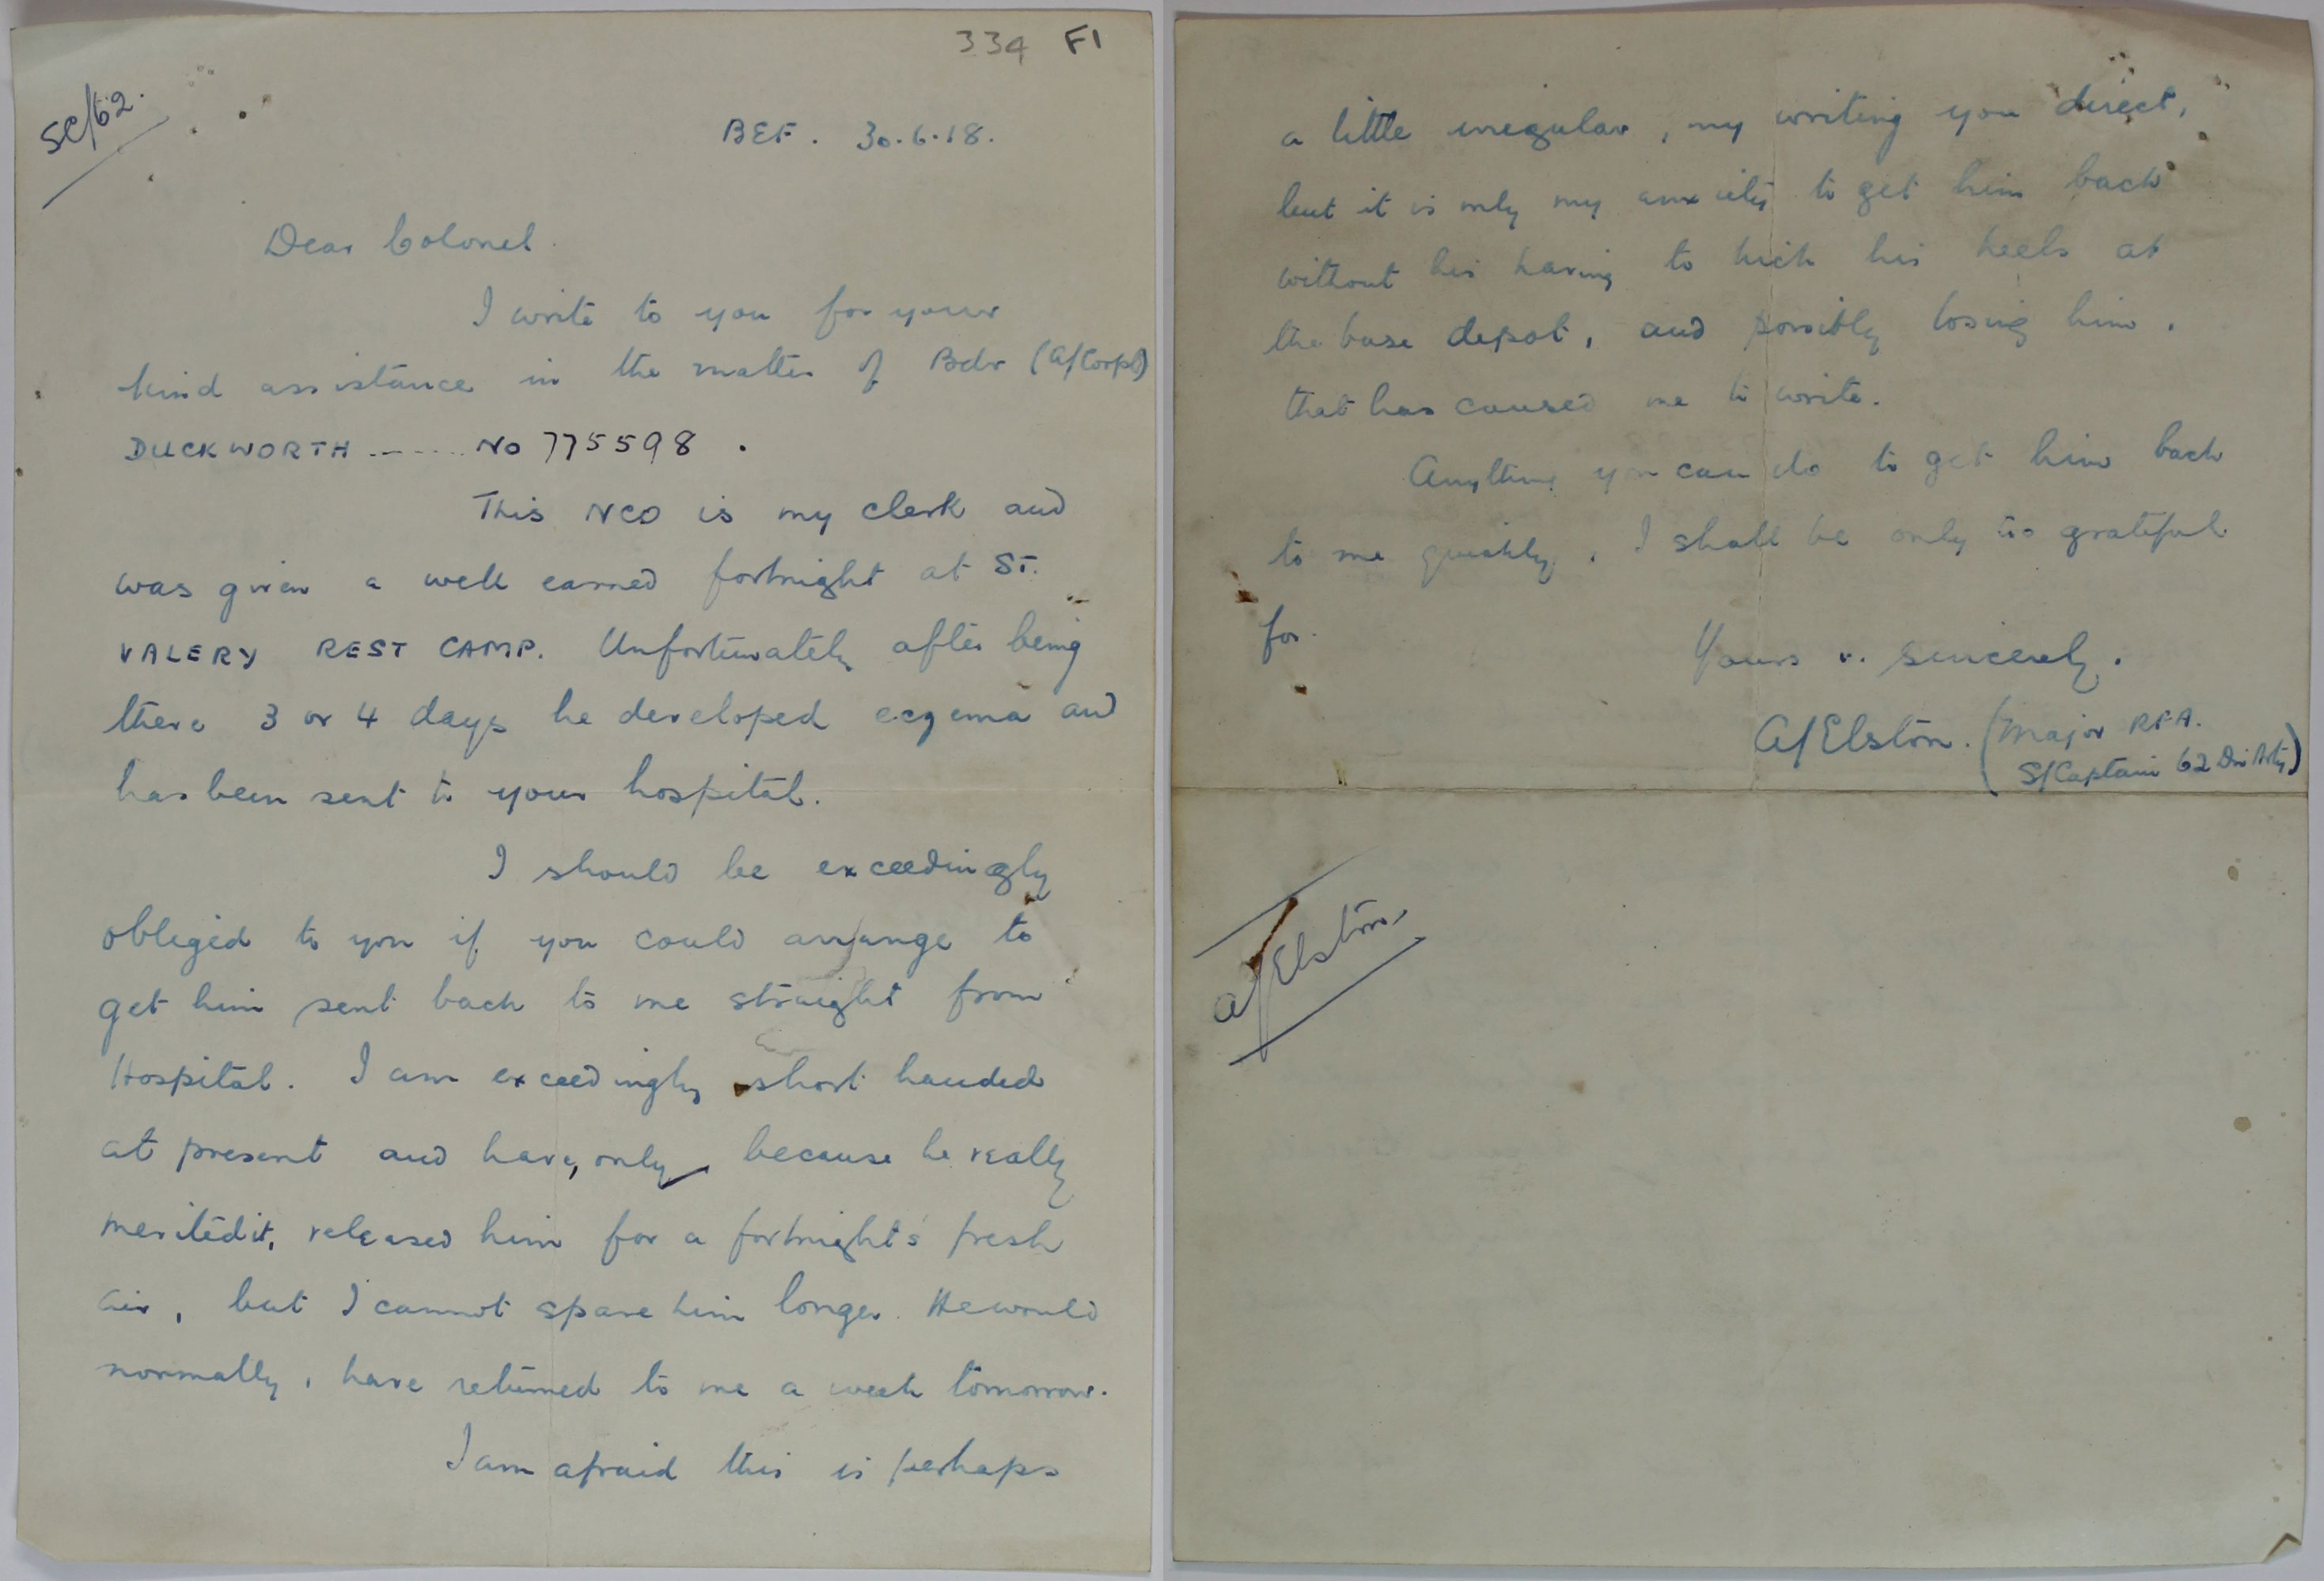 334 F1
SC/62.
BEF. 30.6.18.
Dear Colonel.
I write to you for your
kind assistance in the matter of Bdr (A/Corpl)
DUCKWORTH ------ No 775598.
This NCO is my clerk and
was given a well earned fortnight at ST.
VALERY REST CAMP. Unfortunately after being
there 3 or 4 days he developed eczema and
has been sent to your hospital.
I should be exceedingly
obliged to you if you could arrange to
get him sent back to me straight from
Hospital. I am exceedingly short handed
at present and have, only, because he really
merited it, released him for a fortnight's fresh
air, but I cannot spare him longer. He would
normally, have returned to me a week tomorrow.
I am afraid this is perhaps
a little irregular, my writing you direct,
but it is only my anxiety to get him back
without his having to kick his heels at
the base depot, and possibly losing him.
that has caused me to write.
Anything you can do to get him back
to me quickly, I shall be only too grateful
for.
Yours v. sincerely.
A/Elston. (Major RFA.
S/Captain 62 Div Arty)
A/Elston.